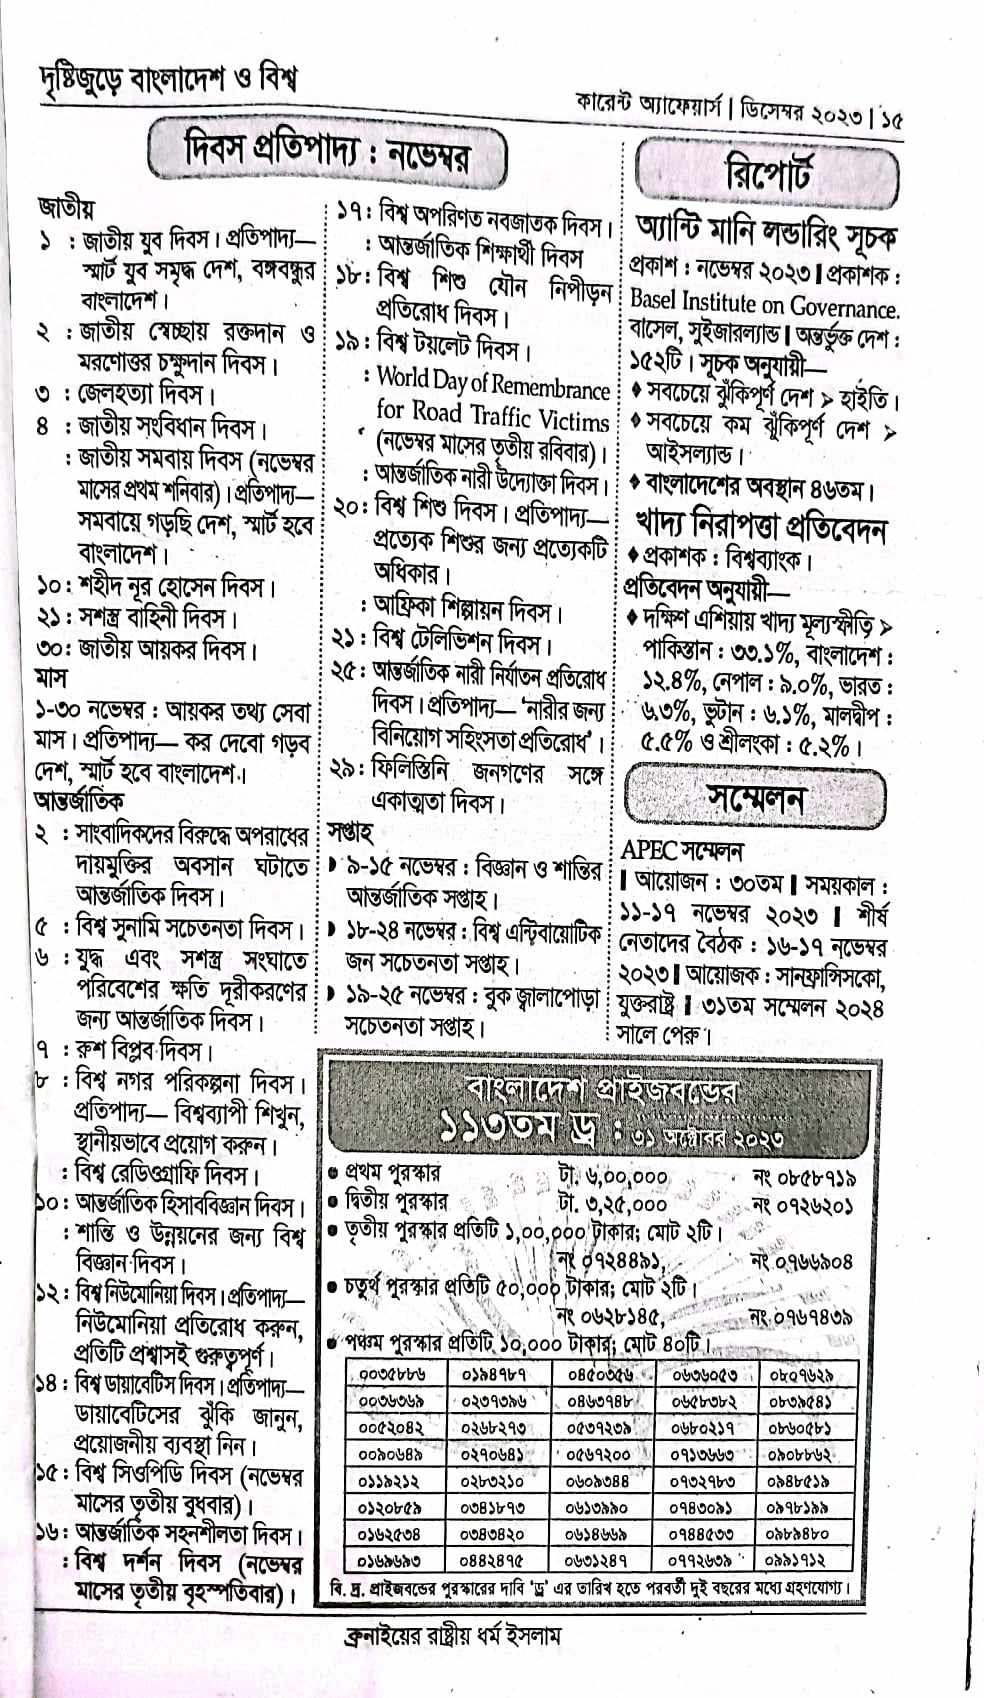 দৃষ্টিজুড়ে বাংলাদেশ ও বিশ্ব
কারেন্ট অ্যাফেয়ার্স | ডিসেম্বর ২০২৩ | ১৫
দিবস প্রতিপাদ্য : নভেম্বর
জাতীয়
১ : জাতীয় যুব দিবস। প্রতিপাদ্য—
স্মার্ট যুব সমৃদ্ধ দেশ, বঙ্গবন্ধুর
বাংলাদেশ।
২ : জাতীয় স্বেচ্ছায় রক্তদান ও
মরণোত্তর চক্ষুদান দিবস।
৩ : জেলহত্যা দিবস।
৪ : জাতীয় সংবিধান দিবস।
: জাতীয় সমবায় দিবস (নভেম্বর
মাসের প্রথম শনিবার)। প্রতিপাদ্য—
সমবায়ে গড়ছি দেশ, স্মার্ট হবে
বাংলাদেশ।
১০ : শহীদ নূর হোসেন দিবস।
২১ : সশস্ত্র বাহিনী দিবস।
৩০ : জাতীয় আয়কর দিবস।
মাস
১-৩০ নভেম্বর : আয়কর তথ্য সেবা
মাস। প্রতিপাদ্য— কর দেবো গড়ব
দেশ, স্মার্ট হবে বাংলাদেশ।
আন্তর্জাতিক
২ : সাংবাদিকদের বিরুদ্ধে অপরাধের
দায়মুক্তির অবসান ঘটাতে
আন্তর্জাতিক দিবস।
৫ : বিশ্ব সুনামি সচেতনতা দিবস।
৬ : যুদ্ধ এবং সশস্ত্র সংঘাতে
পরিবেশের ক্ষতি দূরীকরণের
জন্য আন্তর্জাতিক দিবস।
৭ : রুশ বিপ্লব দিবস।
৮ : বিশ্ব নগর পরিকল্পনা দিবস।
প্রতিপাদ্য— বিশ্বব্যাপী শিখুন,
স্থানীয়ভাবে প্রয়োগ করুন।
: বিশ্ব রেডিওগ্রাফি দিবস।
১০ : আন্তর্জাতিক হিসাববিজ্ঞান দিবস।
: শান্তি ও উন্নয়নের জন্য বিশ্ব
বিজ্ঞান দিবস।
১২ : বিশ্ব নিউমোনিয়া দিবস। প্রতিপাদ্য—
নিউমোনিয়া প্রতিরোধ করুন,
প্রতিটি প্রশ্বাসই গুরুত্বপূর্ণ।
১৪ : বিশ্ব ডায়াবেটিস দিবস। প্রতিপাদ্য—
ডায়াবেটিসের ঝুঁকি জানুন,
প্রয়োজনীয় ব্যবস্থা নিন।
১৫ : বিশ্ব সিওপিডি দিবস (নভেম্বর
মাসের তৃতীয় বুধবার)।
১৬ : আন্তর্জাতিক সহনশীলতা দিবস।
: বিশ্ব দর্শন দিবস (নভেম্বর
মাসের তৃতীয় বৃহস্পতিবার)।
১৭ : বিশ্ব অপরিণত নবজাতক দিবস।
: আন্তর্জাতিক শিক্ষার্থী দিবস
১৮ : বিশ্ব শিশু যৌন নিপীড়ন
প্রতিরোধ দিবস।
১৯ : বিশ্ব টয়লেট দিবস।
: World Day of Remembrance
for Road Traffic Victims
(নভেম্বর মাসের তৃতীয় রবিবার)।
: আন্তর্জাতিক নারী উদ্যোক্তা দিবস।
২০ : বিশ্ব শিশু দিবস। প্রতিপাদ্য—
প্রত্যেক শিশুর জন্য প্রত্যেকটি
অধিকার।
: আফ্রিকা শিল্পায়ন দিবস।
২১ : বিশ্ব টেলিভিশন দিবস।
২৫ : আন্তর্জাতিক নারী নির্যাতন প্রতিরোধ
দিবস। প্রতিপাদ্য— ‘নারীর জন্য
বিনিয়োগ সহিংসতা প্রতিরোধ’।
২৯ : ফিলিস্তিনি জনগণের সঙ্গে
একাত্মতা দিবস।
সপ্তাহ
৯-১৫ নভেম্বর : বিজ্ঞান ও শান্তির
আন্তর্জাতিক সপ্তাহ।
১৮-২৪ নভেম্বর : বিশ্ব এন্টিবায়োটিক
জন সচেতনতা সপ্তাহ।
১৯-২৫ নভেম্বর : বুক জ্বালাপোড়া
সচেতনতা সপ্তাহ।
রিপোর্ট
অ্যান্টি মানি লন্ডারিং সূচক
প্রকাশ : নভেম্বর ২০২৩ ❙ প্রকাশক :
Basel Institute on Governance.
বাসেল, সুইজারল্যান্ড ❙ অন্তর্ভুক্ত দেশ :
১৫২টি। সূচক অনুযায়ী—
♦ সবচেয়ে ঝুঁকিপূর্ণ দেশ ➤ হাইতি।
♦ সবচেয়ে কম ঝুঁকিপূর্ণ দেশ ➤
আইসল্যান্ড।
♦ বাংলাদেশের অবস্থান ৪৬তম।
খাদ্য নিরাপত্তা প্রতিবেদন
♦ প্রকাশক : বিশ্বব্যাংক।
প্রতিবেদন অনুযায়ী—
♦ দক্ষিণ এশিয়ায় খাদ্য মূল্যস্ফীতি ➤
পাকিস্তান : ৩৩.১%, বাংলাদেশ :
১২.৪%, নেপাল : ৯.০%, ভারত :
৬.৩%, ভুটান : ৬.১%, মালদ্বীপ :
৫.৫% ও শ্রীলংকা : ৫.২%।
সম্মেলন
APEC সম্মেলন
❙ আয়োজন : ৩০তম ❙ সময়কাল :
১১-১৭ নভেম্বর ২০২৩ ❙ শীর্ষ
নেতাদের বৈঠক : ১৬-১৭ নভেম্বর
২০২৩ ❙ আয়োজক : সানফ্রান্সিসকো,
যুক্তরাষ্ট্র ❙ ৩১তম সম্মেলন ২০২৪
সালে পেরু।
বাংলাদেশ প্রাইজবন্ডের
১১৩তম ড্র : ৩১ অক্টোবর ২০২৩
● প্রথম পুরস্কার টা. ৬,০০,০০০ নং ০৮৫৮৭১৯
● দ্বিতীয় পুরস্কার টা. ৩,২৫,০০০ নং ০৭২৬২০১
● তৃতীয় পুরস্কার প্রতিটি ১,০০,০০০ টাকার; মোট ২টি।
নং ০৭২৪৪৯১, নং ০৭৬৬৯০৪
● চতুর্থ পুরস্কার প্রতিটি ৫০,০০০ টাকার; মোট ২টি।
নং ০৬২৮১৪৫, নং ০৭৬৭৪৩৯
● পঞ্চম পুরস্কার প্রতিটি ১০,০০০ টাকার; মোট ৪০টি।
০০৩৫৮৮৬ ০১৯৪৭৮৭ ০৪৫০৩৫৬ ০৬৩৬০৫৩ ০৮০৭৬২৯
০০৩৬৩৬৯ ০২৩৭৩৯৬ ০৪৬৩৭৪৮ ০৬৫৮৩৮২ ০৮৩৯৫৪১
০০৫২০৪২ ০২৬৮২৭৩ ০৫৩৭২৩৯ ০৬৮০২১৭ ০৮৬০৫৮১
০০৯০৬৪৯ ০২৭০৬৪১ ০৫৬৭২০০ ০৭১৩৬৬৩ ০৯০৮৮৬২
০১১৯২১২ ০২৮৩২১০ ০৬০৯৩৪৪ ০৭৩২৭৮৩ ০৯৪৮৫১৯
০১২০৮৫৯ ০৩৪১৮৭৩ ০৬১৩৯৯০ ০৭৪৩০৯১ ০৯৭৮১৯৯
০১৬২৫৩৪ ০৩৪৩৪২০ ০৬১৪৬৬৯ ০৭৪৪৫৩৩ ০৯৮৯৪৮০
০১৬৯৬৯৩ ০৪৪২৪৭৫ ০৬৩১২৪৭ ০৭৭২৬৩৯ ০৯৯১৭১২
বি. দ্র. প্রাইজবন্ডের পুরস্কারের দাবি ‘ড্র’ এর তারিখ হতে পরবর্তী দুই বছরের মধ্যে গ্রহণযোগ্য।
ব্রুনাইয়ের রাষ্ট্রীয় ধর্ম ইসলাম